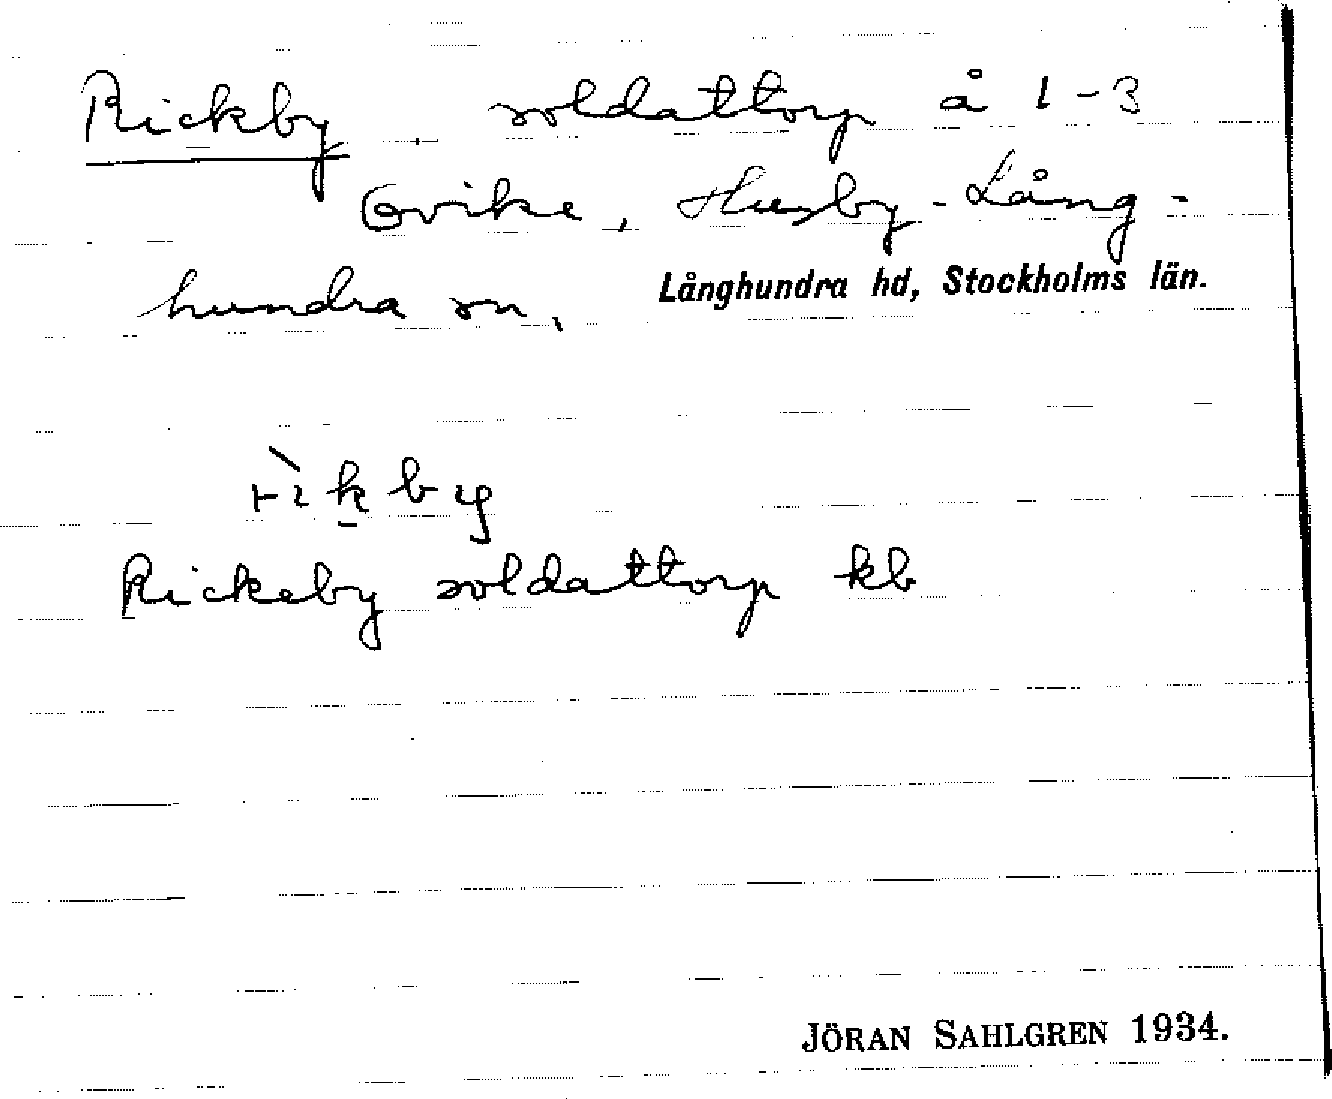 Rickby soldattorp å 1-3
Gvike, Husby-Lång-
hundra sn. Långhundra hd, Stockholms län.
rìkby
Rickeby soldattorp kb
JÖRAN SAHLGREN 1934.